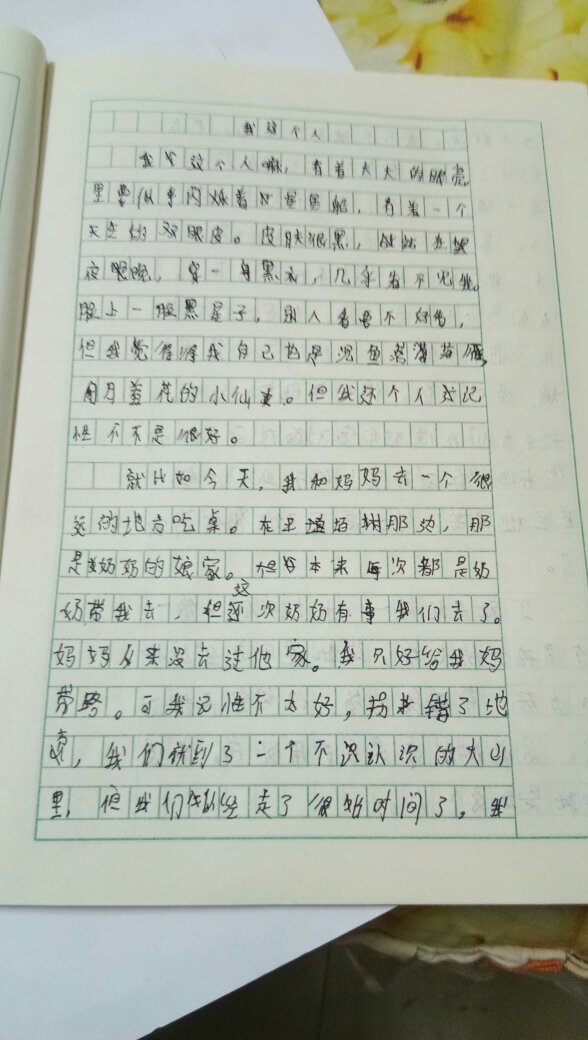 我这个人
我这个人嘛，有着大大的眼亮
里要似乎闪烁着星星呢，有着一个
天生的双眼皮。皮肤很黑，站在黑
夜眼晚，穿一身黑衣，几乎看不见我。
脸上一脸黑星子。别人看是不好看，
但我觉得我自己也是沉鱼落
月羞花的小仙女。但我这个人记
但不不是很好。
就比如今天，我和妈妈去一个很
远的地方吃桌。在树那边，那
是奶奶的娘家。但本来每次都是奶
奶带我去，但这次奶奶有事我们去了。
妈妈从来没去过他家。我只好给我妈
带路。可我记性不太好，拐错了地
，我们找到了一个不认识的大山
里，但我们走了很时间了。我